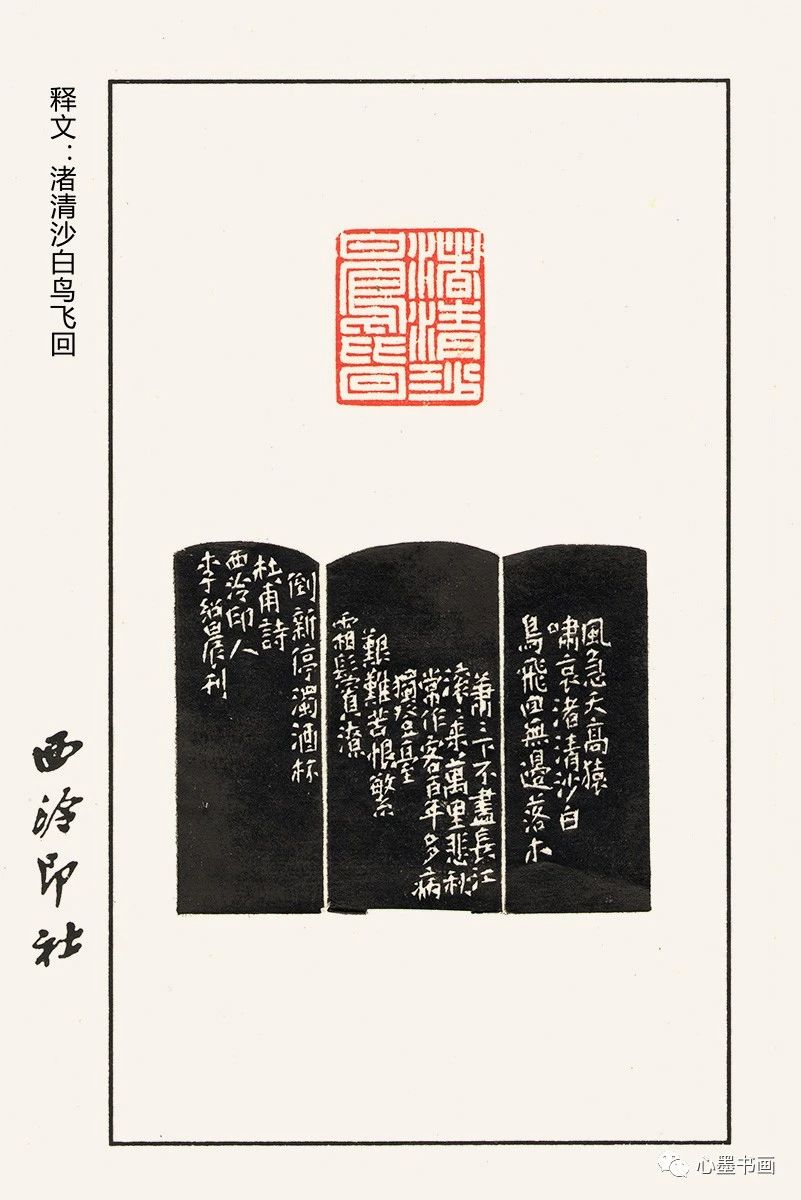 释文：渚清沙白鸟飞回
渚清沙
白鳥飛回
風急天高猿
嘯哀渚清沙白
鳥飛回無邊落木
蕭〻下不盡長江
滾〻來萬里悲秋
常作客百年多病
獨登臺
艱難苦恨繁
霜鬢潦
倒新停濁酒杯
杜甫詩
西泠印人
李 刊
西泠印社
心墨书画